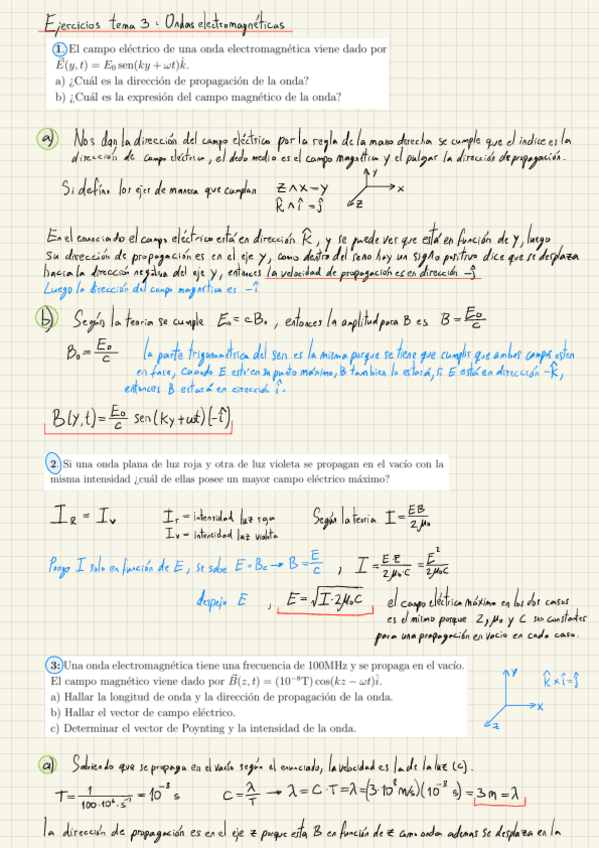 Ejercicios tema 3: Ondas electromagnéticas
1. El campo eléctrico de una onda electromagnética viene dado por
E⃗(y, t) = E₀ sen(ky + ωt)k̂.
a) ¿Cuál es la dirección de propagación de la onda?
b) ¿Cuál es la expresión del campo magnético de la onda?
a) Nos dan la dirección del campo eléctrico por la regla de la mano derecha se cumple que el indice es la
dirección de campo eléctrico, el dedo medio es el campo magnético y el pulgar la dirección de propagación.
Si defino los ejer de manera que cumplan z∧x=y
k̂∧î=ĵ
y
x
z
En el enunciado el campo eléctrico está en dirección k̂, y se puede ver que está en función de y, luego
su dirección de propagación es en el eje y, como dentro del seno hay un signo positivo dice que se desplaza
hacia la dirección negativa del eje y, entonces la velocidad de propagación es en dirección -ĵ
Luego la dirección del campo magnético es -î
b) Según la teoria se cumple E₀ = cB₀, entonces la amplitud para B es B = E₀/c
B₀ = E₀/c la parte trigonométrica del sen es la misma porque se tiene que cumplir que ambos campos esten
en fase, cuando E esté en su punto máximo, B tambien lo estará, si E está en dirección -k̂,
entonces B estará en dirección î.
B(y,t) = E₀/c sen(ky+ωt)(-î)
2. Si una onda plana de luz roja y otra de luz violeta se propagan en el vacío con la
misma intensidad ¿cuál de ellas posee un mayor campo eléctrico máximo?
I_R = I_V
I_r = intensidad luz roja
I_v = intensidad luz violeta
Según la teoria I = EB/2μ₀
Pongo I solo en función de E, se sabe E = Bc → B = E/c , I = E·E/2μ₀·c = E²/2μ₀c
despejo E , E = √I·2μ₀c
el campo eléctrico máximo en los dos casos
es el mismo porque 2, μ₀ y c son constantes
para una propagación en vacio en cada caso.
3. Una onda electromagnética tiene una frecuencia de 100MHz y se propaga en el vacío.
El campo magnético viene dado por B⃗(z, t) = (10⁻⁸T) cos(kz − ωt)î.
a) Hallar la longitud de onda y la dirección de propagación de la onda.
b) Hallar el vector de campo eléctrico.
c) Determinar el vector de Poynting y la intensidad de la onda.
y
k̂×î=ĵ
x
z
a) Sabiendo que se propaga en el vacío según el enunciado, la velocidad es la de la luz (c).
T = 1/100·10⁶·s⁻¹ = 10⁻⁸ s c = λ/T → λ = c·T = λ = (3·10⁸ m/s)(10⁻⁸ s) = 3 m = λ
la dirección de propagación es en el eje z porque esta B en función de z como onda ademas se desplaza en la